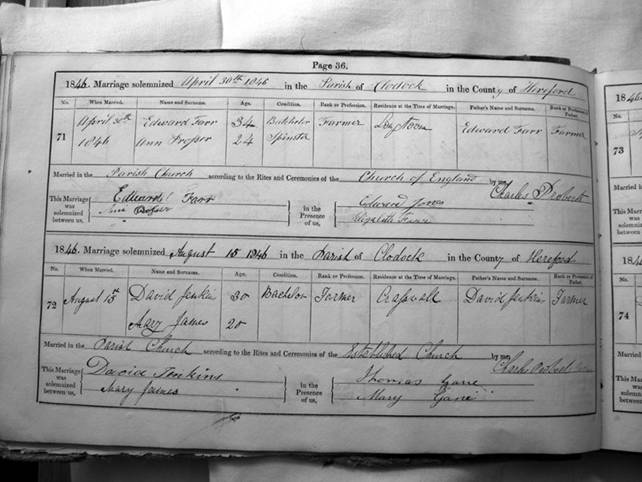 Page 36.
1846. Marriage solemnized April 30th 1846 in the Parish of Clodock in the County of Hereford
No. When Married. Name and Surname. Age. Condition. Rank or Profession. Residence at the Time of Marriage. Father's Name and Surname. Rank or Profession of Father.
71 April 30th 1846 Edward Farr 34 Batchelor Farmer Edward Farr Farmer
Ann Prosser 24 Spinster
Married in the Parish Church according to the Rites and Ceremonies of the Church of England by me, Charles Probert
This Marriage was solemnized between us, Edward Farr
Ann Prosser
in the Presence of us, Edward Jones
Elizabeth
1846. Marriage solemnized August 15 1846 in the Parish of Clodock in the County of Hereford
No. When Married. Name and Surname. Age. Condition. Rank or Profession. Residence at the Time of Marriage. Father's Name and Surname. Rank or Profession of Father.
72 August 15th David Jenkins 30 Bachelor Farmer Craswall David Jenkins Farmer
Mary James 20
Married in the Parish Church according to the Rites and Ceremonies of the Established Church by me, Charles Probert
This Marriage was solemnized between us, David Jenkins
Mary James
in the Presence of us, Thomas Gane
Mary Gane
1846
No.
73
Married i
This Marriage was solemnized between us,
1846.
No.
74
Married i
This Marriage was solemnized between us,